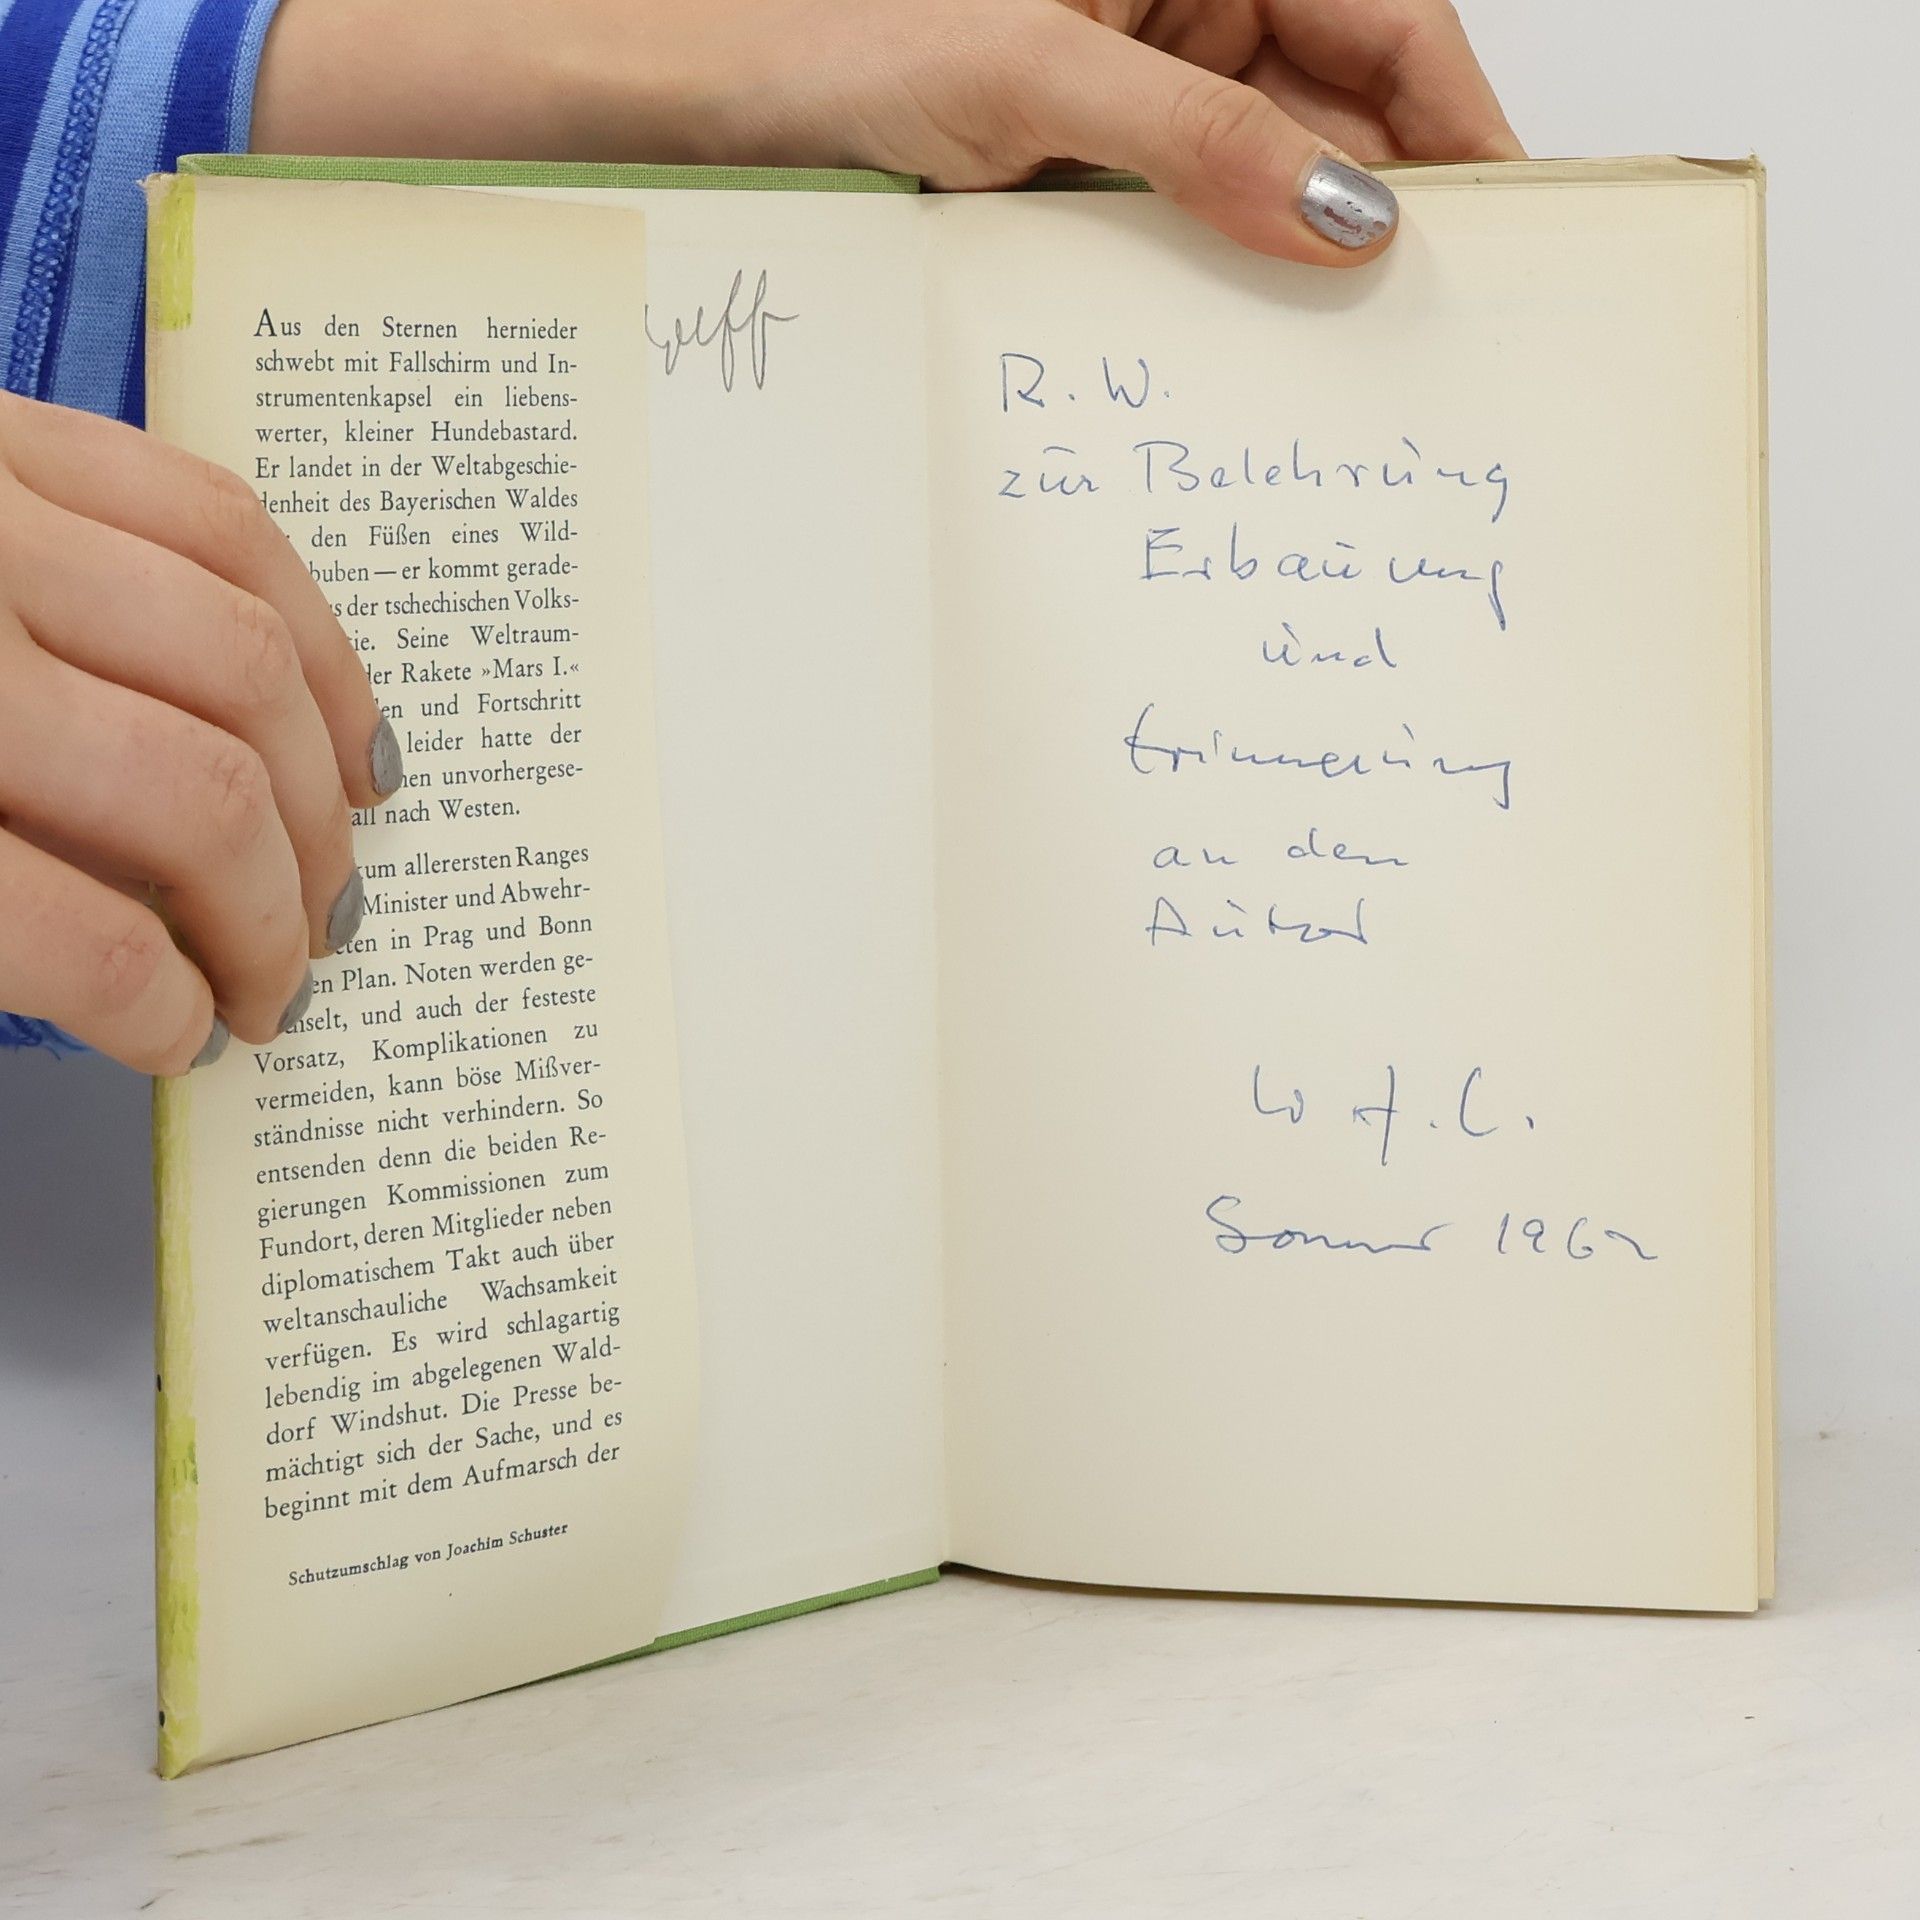 Aus den Sternen hernieder
schwebt mit Fallschirm und In-
strumentenkapsel ein liebens-
werter, kleiner Hundebastard.
Er landet in der Weltabgeschie-
denheit des Bayerischen Waldes
den Füßen eines Wild-
buben — er kommt gerade-
der tschechischen Volks-
Seine Weltraum-
der Rakete »Mars I.«
und Fortschritt
leider hatte der
unvorhergese-
nach Westen.
allerersten Ranges
Minister und Abwehr-
in Prag und Bonn
Plan. Noten werden ge-
und auch der festeste
Vorsatz, Komplikationen zu
vermeiden, kann böse Mißver-
ständnisse nicht verhindern. So
entsenden denn die beiden Re-
gierungen Kommissionen zum
Fundort, deren Mitglieder neben
diplomatischem Takt auch über
weltanschauliche Wachsamkeit
verfügen. Es wird schlagartig
lebendig im abgelegenen Wald-
dorf Windshut. Die Presse be-
mächtigt sich der Sache, und es
beginnt mit dem Aufmarsch der
Schutzumschlag von Joachim Schuster
R. W.
zur Belehrung
Erbauung
und
Erinnerung
an den
Autor
Sommer 1962